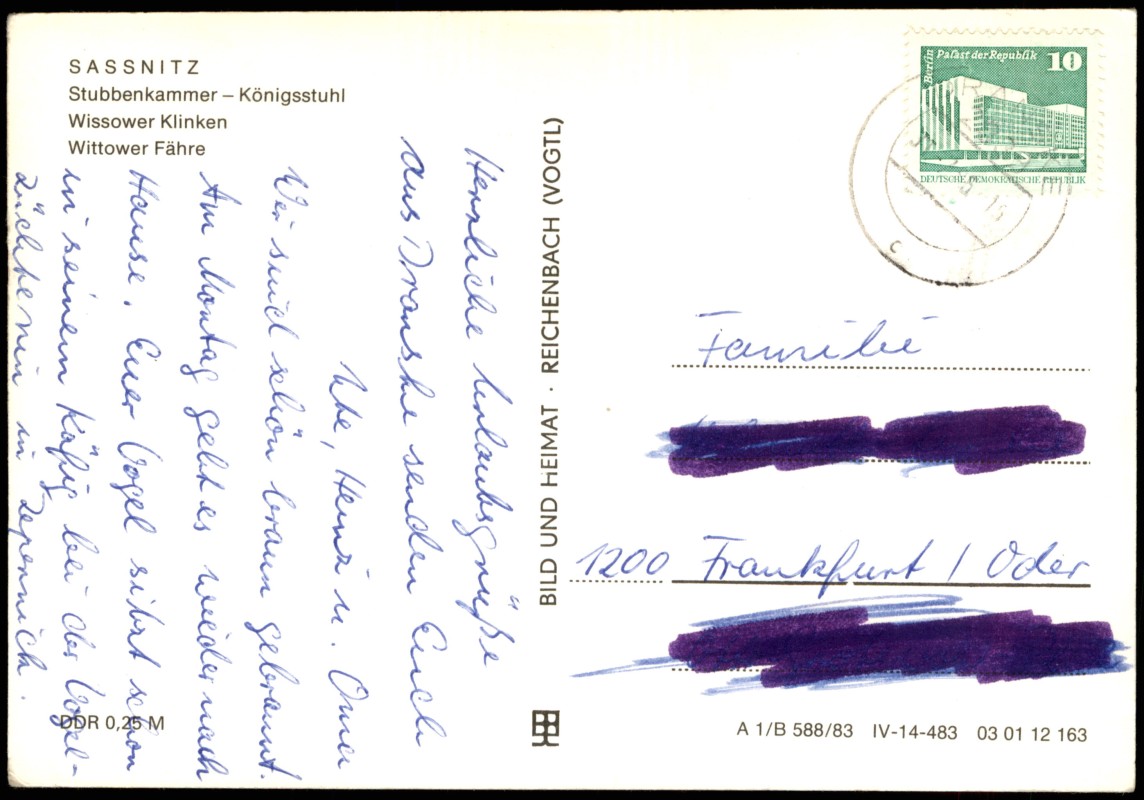 SASSNITZ
Stubbenkammer – Königsstuhl
Wissower Klinken
Wittower Fähre
Herzliche Urlaubsgrüße
aus Dranske senden Euch
Ute, Heinz u. Oma
Wir sind schön braun gebrannt.
Am Montag geht es wieder nach
Hause. Euer Vogel sitzt schon
in seinem Käfig bei der Vogel-
züchterin in Zepernick.
DDR 0,25 M
BILD UND HEIMAT · REICHENBACH (VOGTL)
Berlin
Palast der Republik
10
DEUTSCHE DEMOKRATISCHE REPUBLIK
Familie
1200 Frankfurt / Oder
A 1/B 588/83 IV-14-483 03 01 12 163